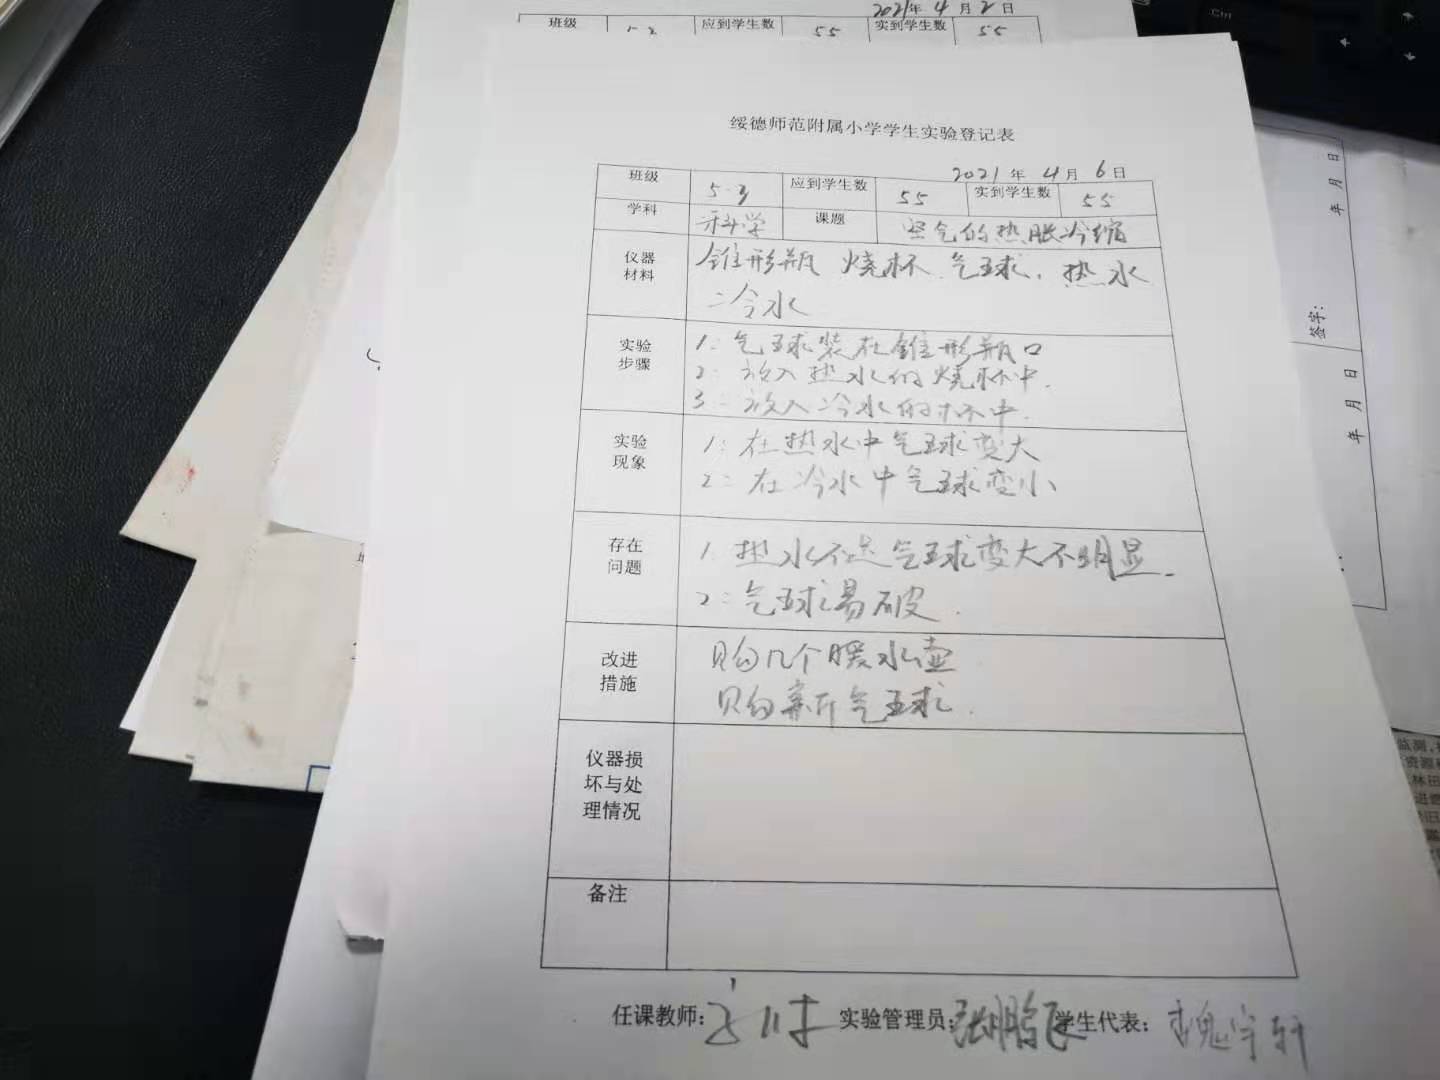 2021年 4 月 2 日
班级 应到学生数 55 实到学生数 55
绥德师范附属小学学生实验登记表
2021 年 4 月 6 日
班级 5.3 应到学生数 55 实到学生数 55
学科 科学 课题 空气的热胀冷缩
仪器材料 锥形瓶 烧杯 气球、热水
冷水
实验步骤 1: 气球装在锥形瓶口
2: 放入热水的烧杯中.
3: 放入冷水的杯中.
实验现象 1: 在热水中气球变大
2: 在冷水中气球变小
存在问题 1. 热水不足 气球变大不明显.
2: 气球易破.
改进措施 购几个暖水壶
购新气球.
仪器损
坏与处
理情况
备注
任课教师: 实验管理员: 学生代表: 宇轩
年 月 日
签字:
年 月 日
年 月 日
Ctrl